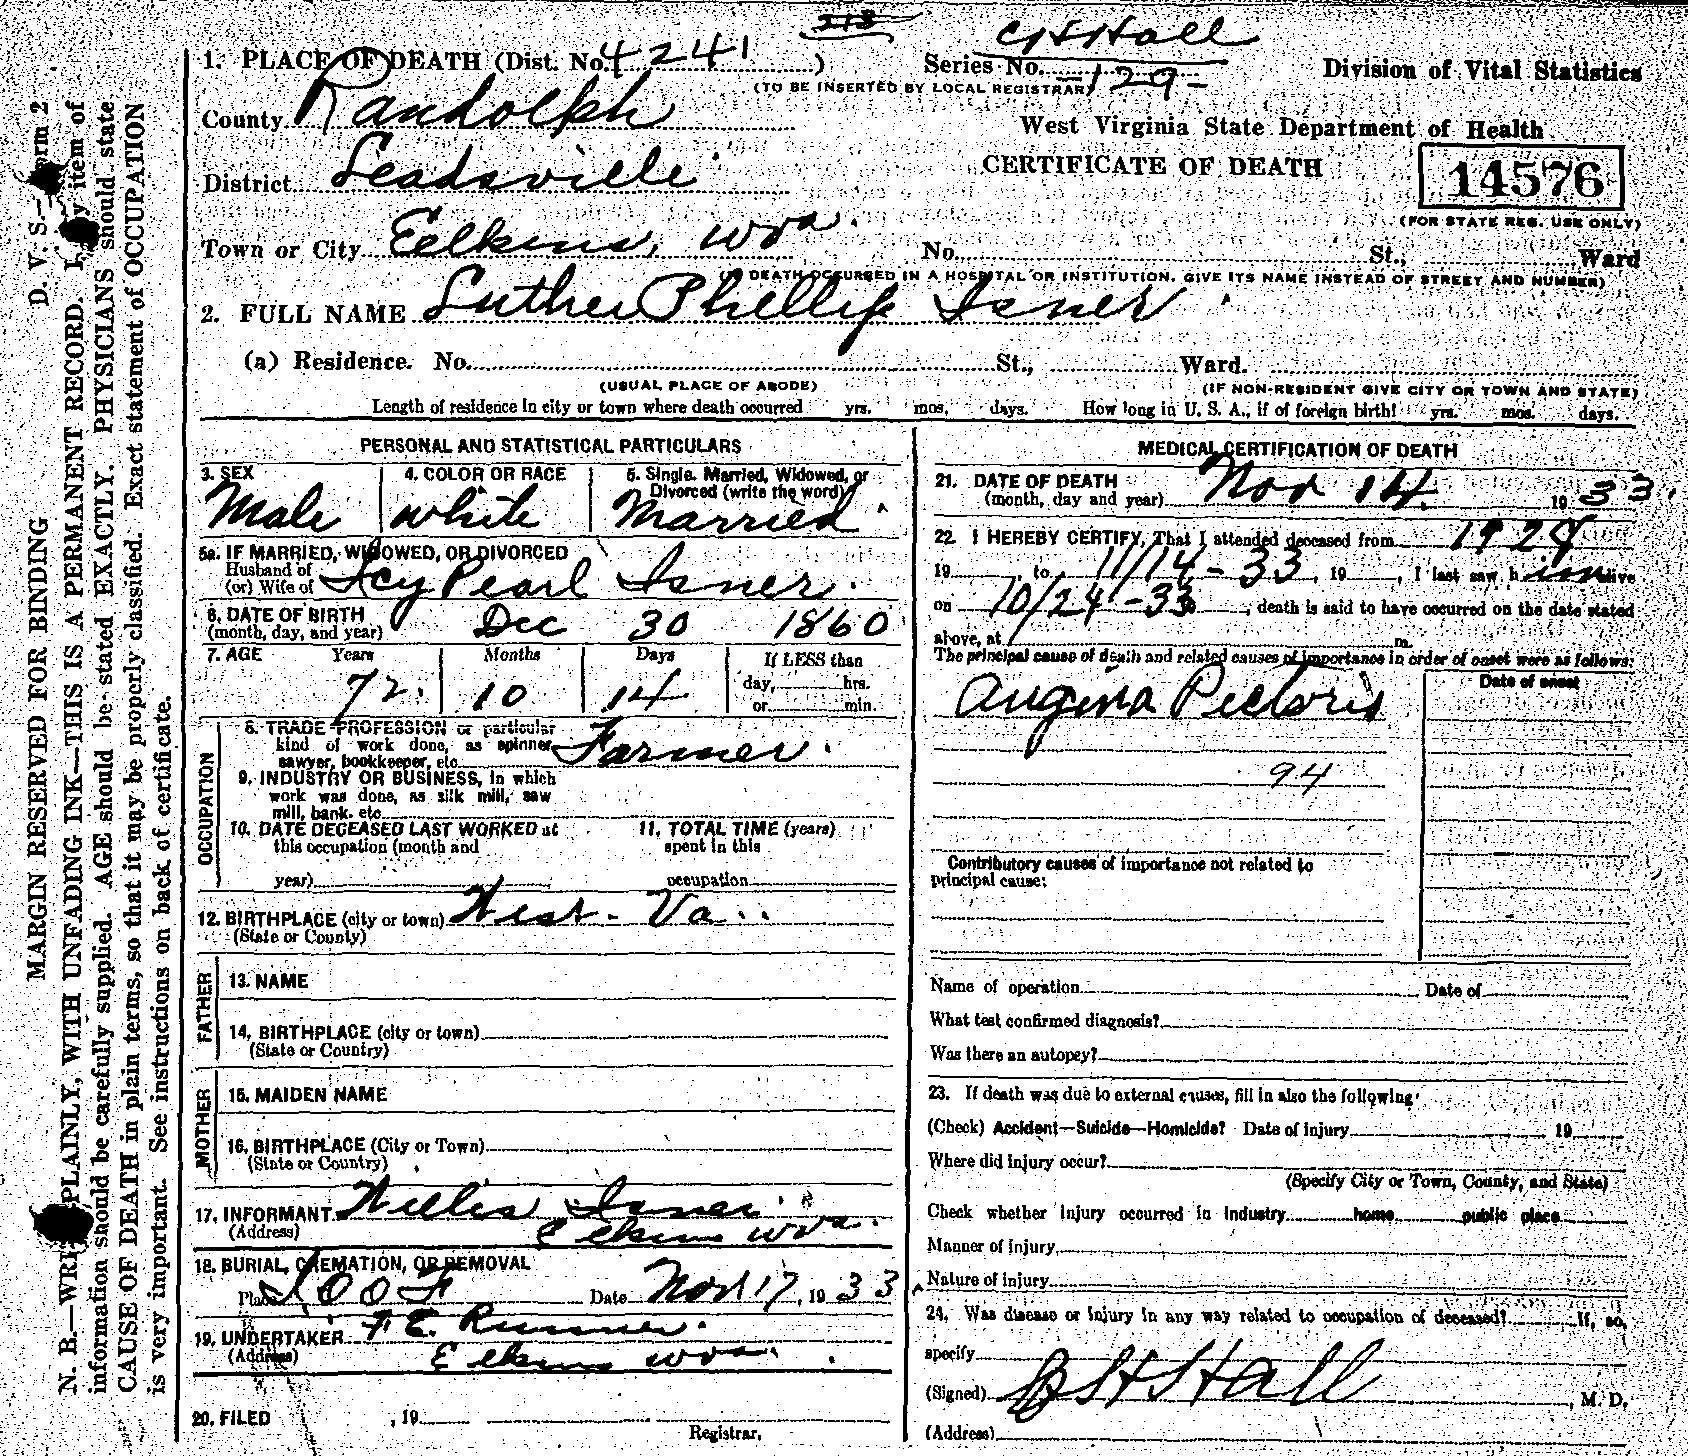 213
C H Hall
1. PLACE OF DEATH (Dist. No. 4241)
Series No. -129-
(TO BE INSERTED BY LOCAL REGISTRAR)
Division of Vital Statistics
County Randolph
West Virginia State Department of Health
CERTIFICATE OF DEATH
14576
(FOR STATE REG. USE ONLY)
District Leadsville
Town or City Eelkins, Wva. No. St., Ward
(IF DEATH OCCURRED IN A HOSPITAL OR INSTITUTION, GIVE ITS NAME INSTEAD OF STREET AND NUMBER)
2. FULL NAME Luther Phellip Isner
(a) Residence. No. St., Ward.
(USUAL PLACE OF ABODE) (IF NON-RESIDENT GIVE CITY OR TOWN AND STATE)
Length of residence in city or town where death occurred yrs. mos. days. How long in U. S. A., if of foreign birth! yrs. mos. days.
PERSONAL AND STATISTICAL PARTICULARS
3. SEX 4. COLOR OR RACE 5. Single, Married, Widowed, or
Divorced (write the word)
Male white Married
5a. IF MARRIED, WIDOWED, OR DIVORCED
Husband of
(or) Wife of Icy Pearl Isner.
6. DATE OF BIRTH
(month, day, and year) Dec 30 1860
7. AGE Years Months Days If LESS than
day, hrs.
or min.
72. 10 14
OCCUPATION
8. TRADE PROFESSION or particular
kind of work done, as spinner
sawyer, bookkeeper, etc. Farmer.
9. INDUSTRY OR BUSINESS, in which
work was done, as silk mill, saw
mill, bank. etc
10. DATE DECEASED LAST WORKED at
this occupation (month and
year)
11. TOTAL TIME (years)
spent in this
occupation
12. BIRTHPLACE (city or town) West-Va..
(State or County)
FATHER
13. NAME
14. BIRTHPLACE (city or town)
(State or Country)
MOTHER
15. MAIDEN NAME
16. BIRTHPLACE (City or Town)
(State or Country)
17. INFORMANT Willis Isner
(Address) Elkins Wva.
18. BURIAL, CREMATION, OR REMOVAL
Place I.O O F Date Nov 17, 1933
19. UNDERTAKER F E. Runner.
(Address) Elkins Wva.
20. FILED , 19
Registrar.
MEDICAL CERTIFICATION OF DEATH
21. DATE OF DEATH
(month, day and year) Nov 14. 1933.
22. I HEREBY CERTIFY, That I attended deceased from 1928
19 to 11/14-33, 19, I last saw him alive
on 10/24-33, death is said to have occurred on the date stated
above, at m.
The principal cause of death and related causes of importance in order of onset were as follows:
Date of onset
Angina Pectoris
94
Contributory causes of importance not related to
principal cause:
Name of operation Date of
What test confirmed diagnosis?
Was there an autopsy?
23. If death was due to external causes, fill in also the following:
(Check) Accident—Suicide—Homicide? Date of injury 19
Where did injury occur?
(Specify City or Town, County, and State)
Check whether injury occurred in industry home public place
Manner of injury
Nature of injury
24. Was disease or injury in any way related to occupation of deceased? If, so,
specify
(Signed) C H Hall, M. D.
(Address)
MARGIN RESERVED FOR BINDING D. V. S.—
N. B.—PLAINLY, WITH UNFADING INK—THIS IS A PERMANENT RECORD. item of
information should be carefully supplied. AGE should be stated EXACTLY. PHYSICIANS should state
CAUSE OF DEATH in plain terms, so that it may be properly classified. Exact statement of OCCUPATION
is very important. See instructions on back of certificate.